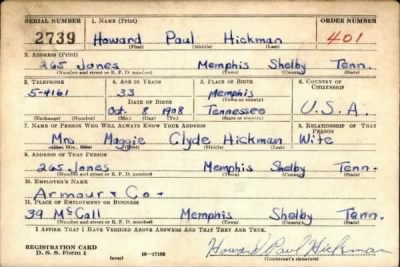 SERIAL NUMBER 1. NAME (Print) ORDER NUMBER
2739 Howard Paul Hickman 401
(First) (Middle) (Last)
2. ADDRESS (Print)
265 Jones Memphis Shelby Tenn.
(Number and street or R. F. D. number) (Town) (County) (State)
3. TELEPHONE 4. AGE IN YEARS 5. PLACE OF BIRTH 6. COUNTRY OF CITIZENSHIP
5-4161 33 Memphis
DATE OF BIRTH (Town or county)
Oct. 8 1908 Tennessee U.S.A.
(Mo.) (Day) (Yr.) (State or country)
7. NAME OF PERSON WHO WILL ALWAYS KNOW YOUR ADDRESS 8. RELATIONSHIP OF THAT PERSON
Mrs Maggie Clyde Hickman Wife
(Mr., Mrs., Miss) (First) (Middle) (Last)
9. ADDRESS OF THAT PERSON
265 Jones Memphis Shelby Tenn.
(Number and street or R. F. D. number) (Town) (County) (State)
10. EMPLOYER'S NAME
Armour & Co-
11. PLACE OF EMPLOYMENT OR BUSINESS
39 McCall Memphis Shelby Tenn.
(Number and street or R. F. D. number) (Town) (County) (State)
I AFFIRM THAT I HAVE VERIFIED ABOVE ANSWERS AND THAT THEY ARE TRUE.
REGISTRATION CARD
D. S. S. Form 1 (over) 16-17105 Howard Paul Hickman
(Registrant's signature)